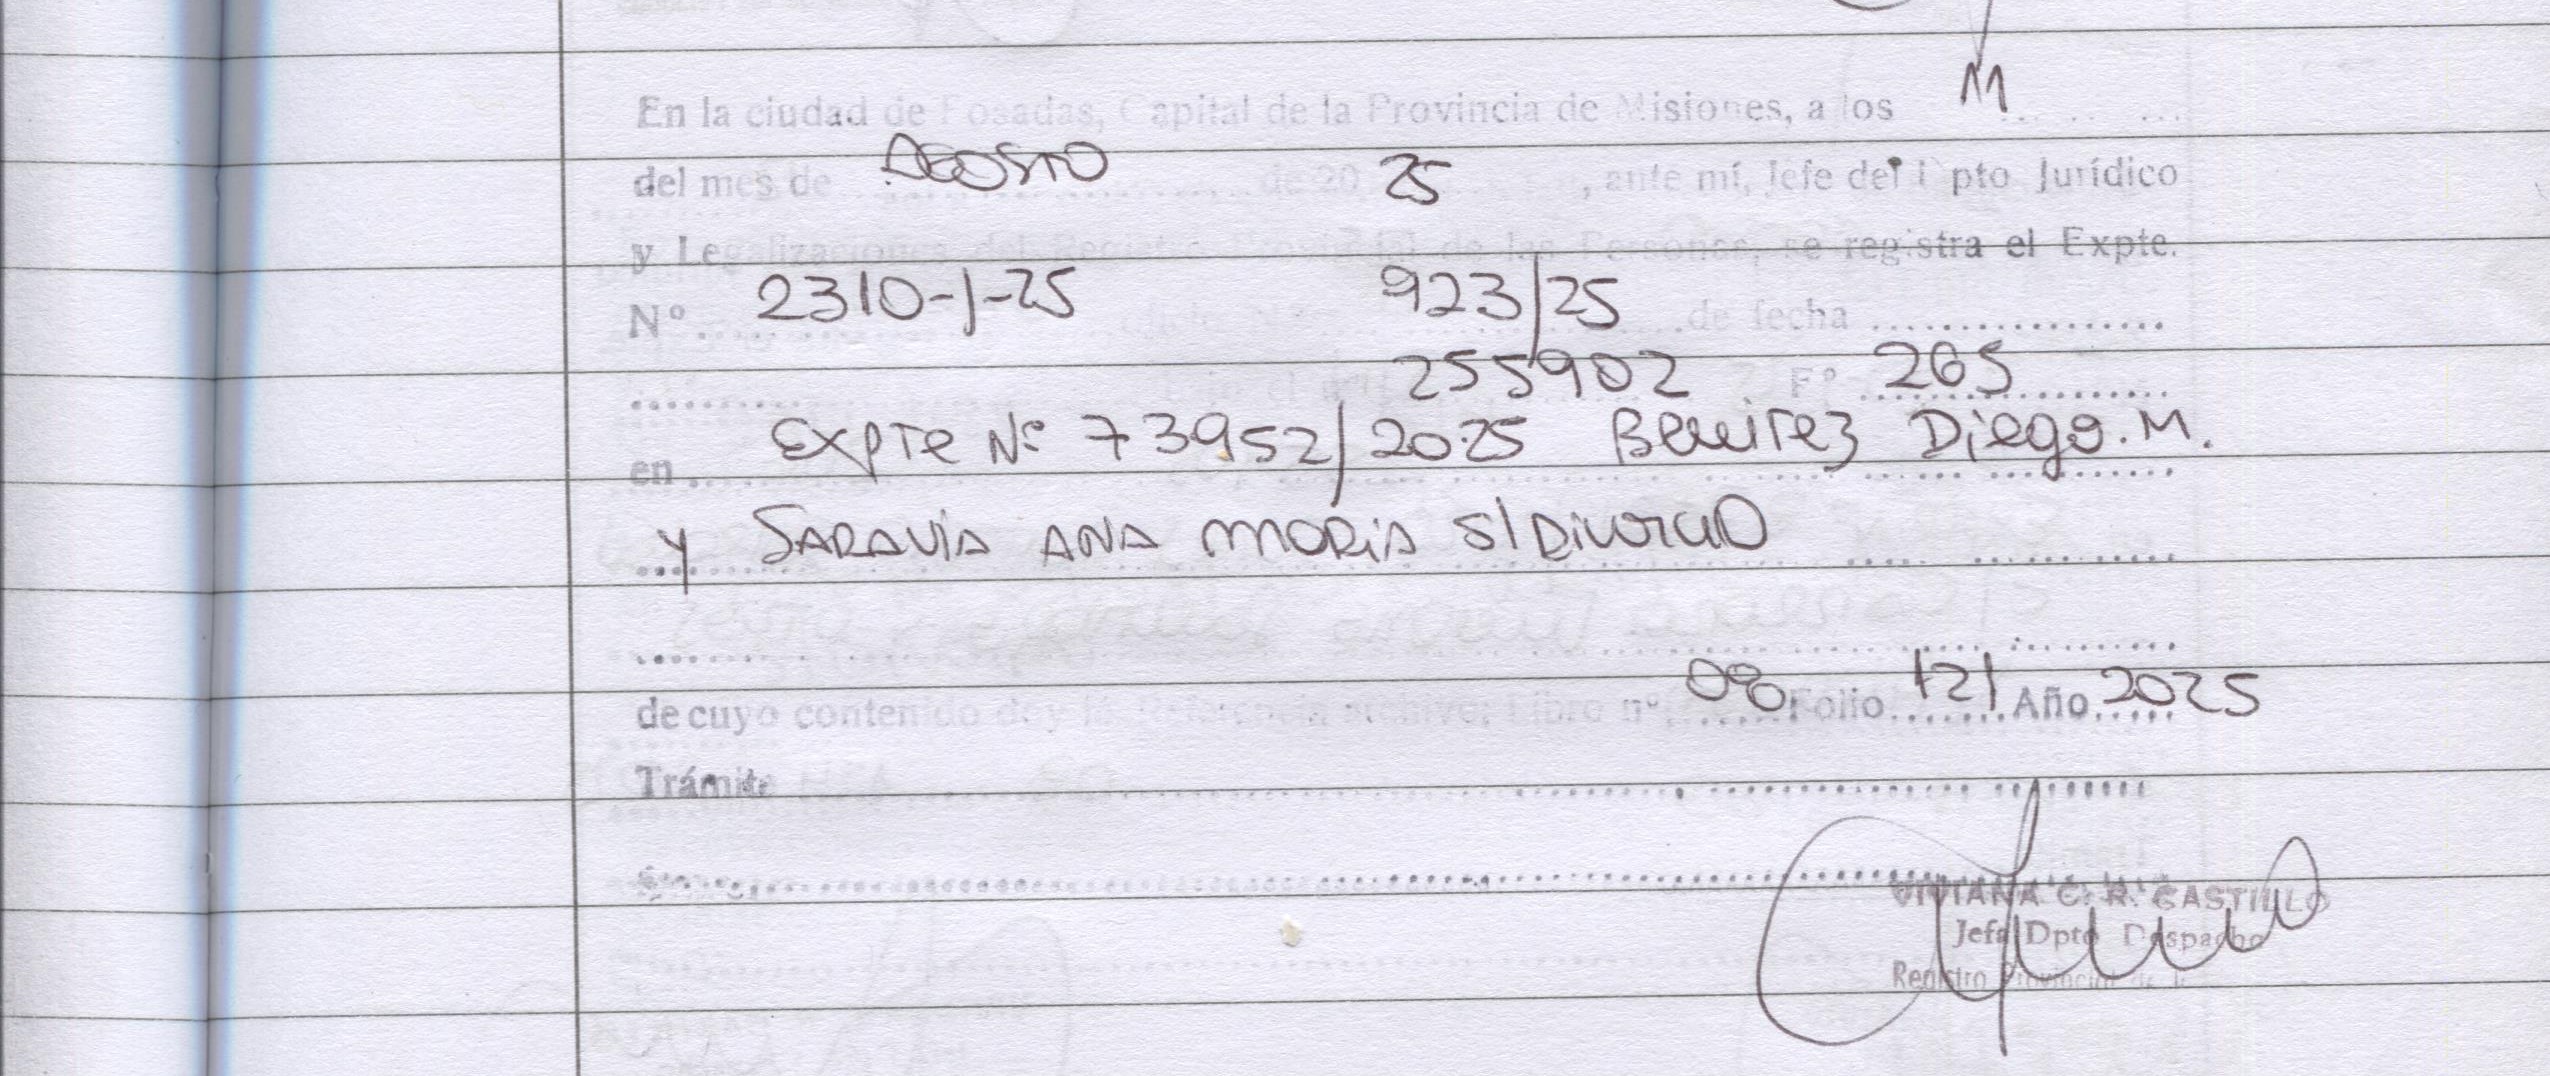 En la ciudad de Posadas, Capital de la Provincia de Misiones, a los 11
del mes de AGOSTO de 20 25, ante mí, Jefe del Dpto Jurídico
y Legalizaciones del Registro Provincial de las Personas, se registra el Expte.
Nº 2310-J-25 923/25 de fecha
255902 Fº 265
en Expte Nº 73952/2025 Benitez Diego. M.
y SARAVIA ANA MARIA S/DIVORCIO
de cuyo contenido doy fe. Referencia archivo: Libro nº 08 Folio 121 Año 2025
Trámite
VIVIANA C. R. CASTILLO
Jefa Dpto Despacho
Registro Provincial de